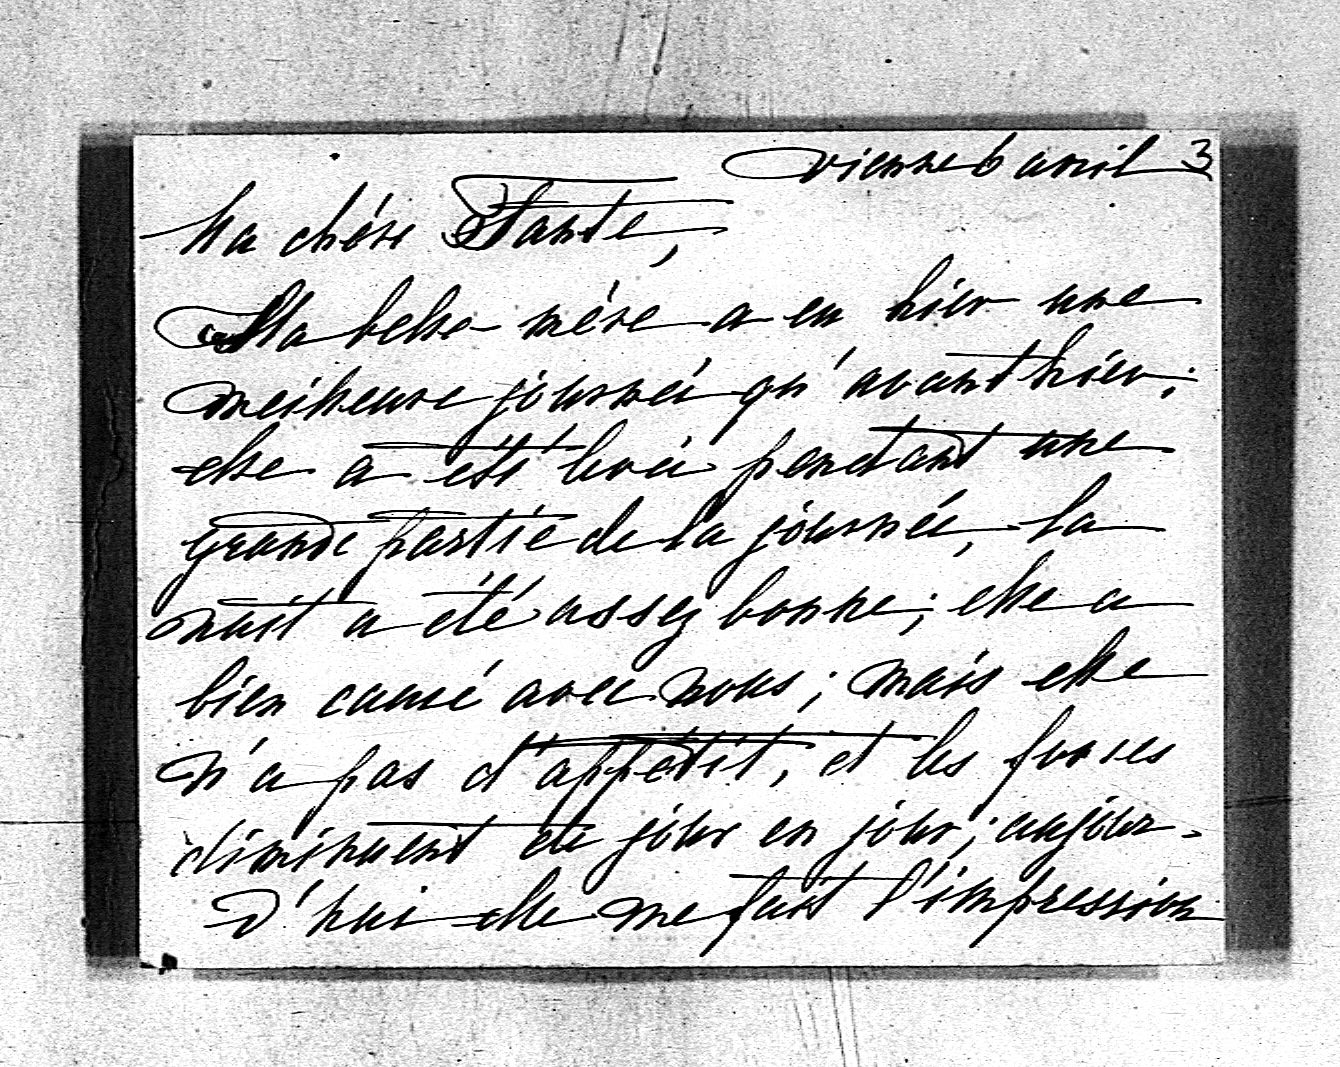 Vienne 6 avril 3
Ma chère Tante,
Ma belle-mère a eu hier une
meilleure journée qu'avanthier;
elle a été levée pendant une
grande partie de la journée, la
nuit a été assez bonne; elle a
bien causé avec nous; mais elle
n'a pas d'appétit, et les forces
diminuent de jour en jour; aujour-
d'hui elle me fait l'impression